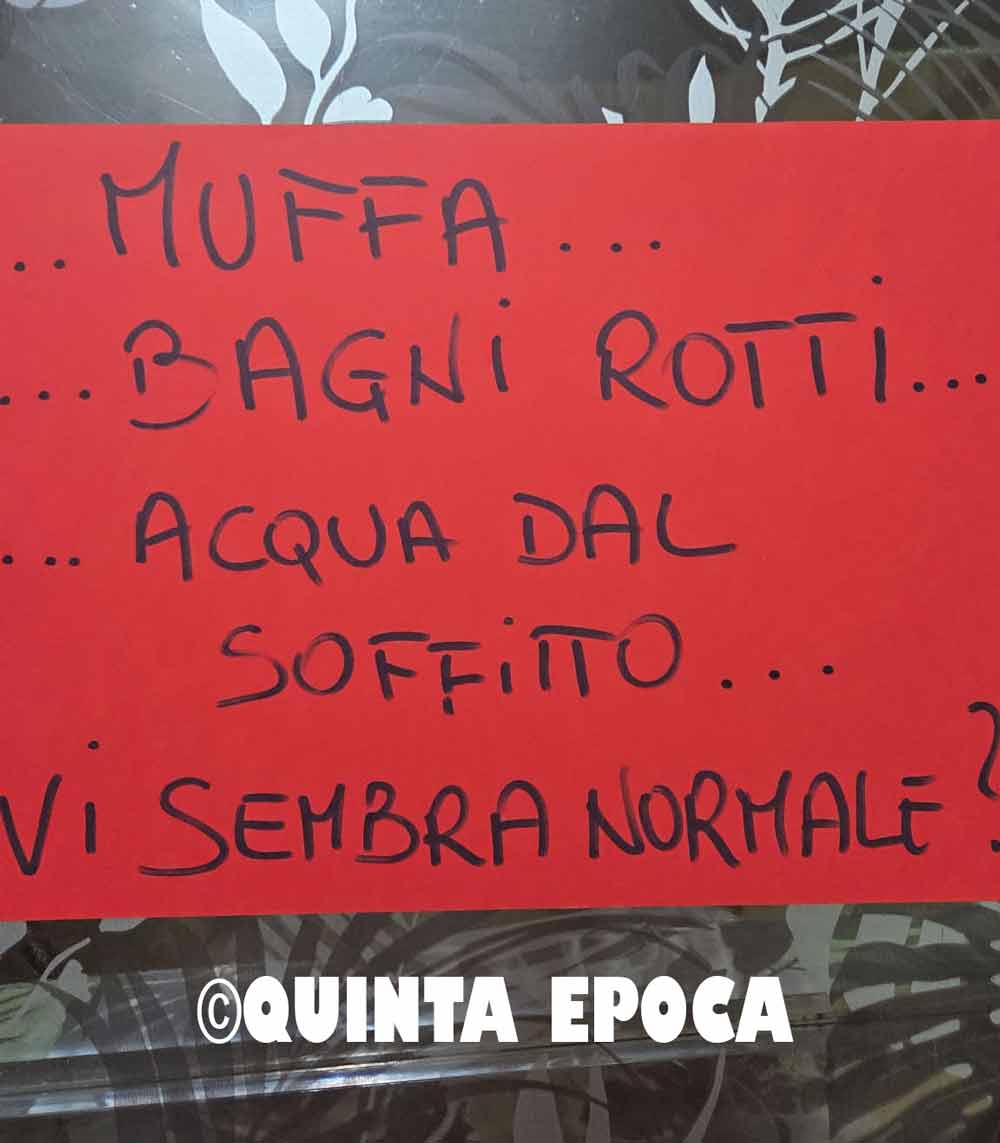 ..MUFFA...
...BAGNi ROTTi...
...ACQUA DAL
SOFFiTTO...
Vi SEMBRA NORMALE?
©QUINTA EPOCA